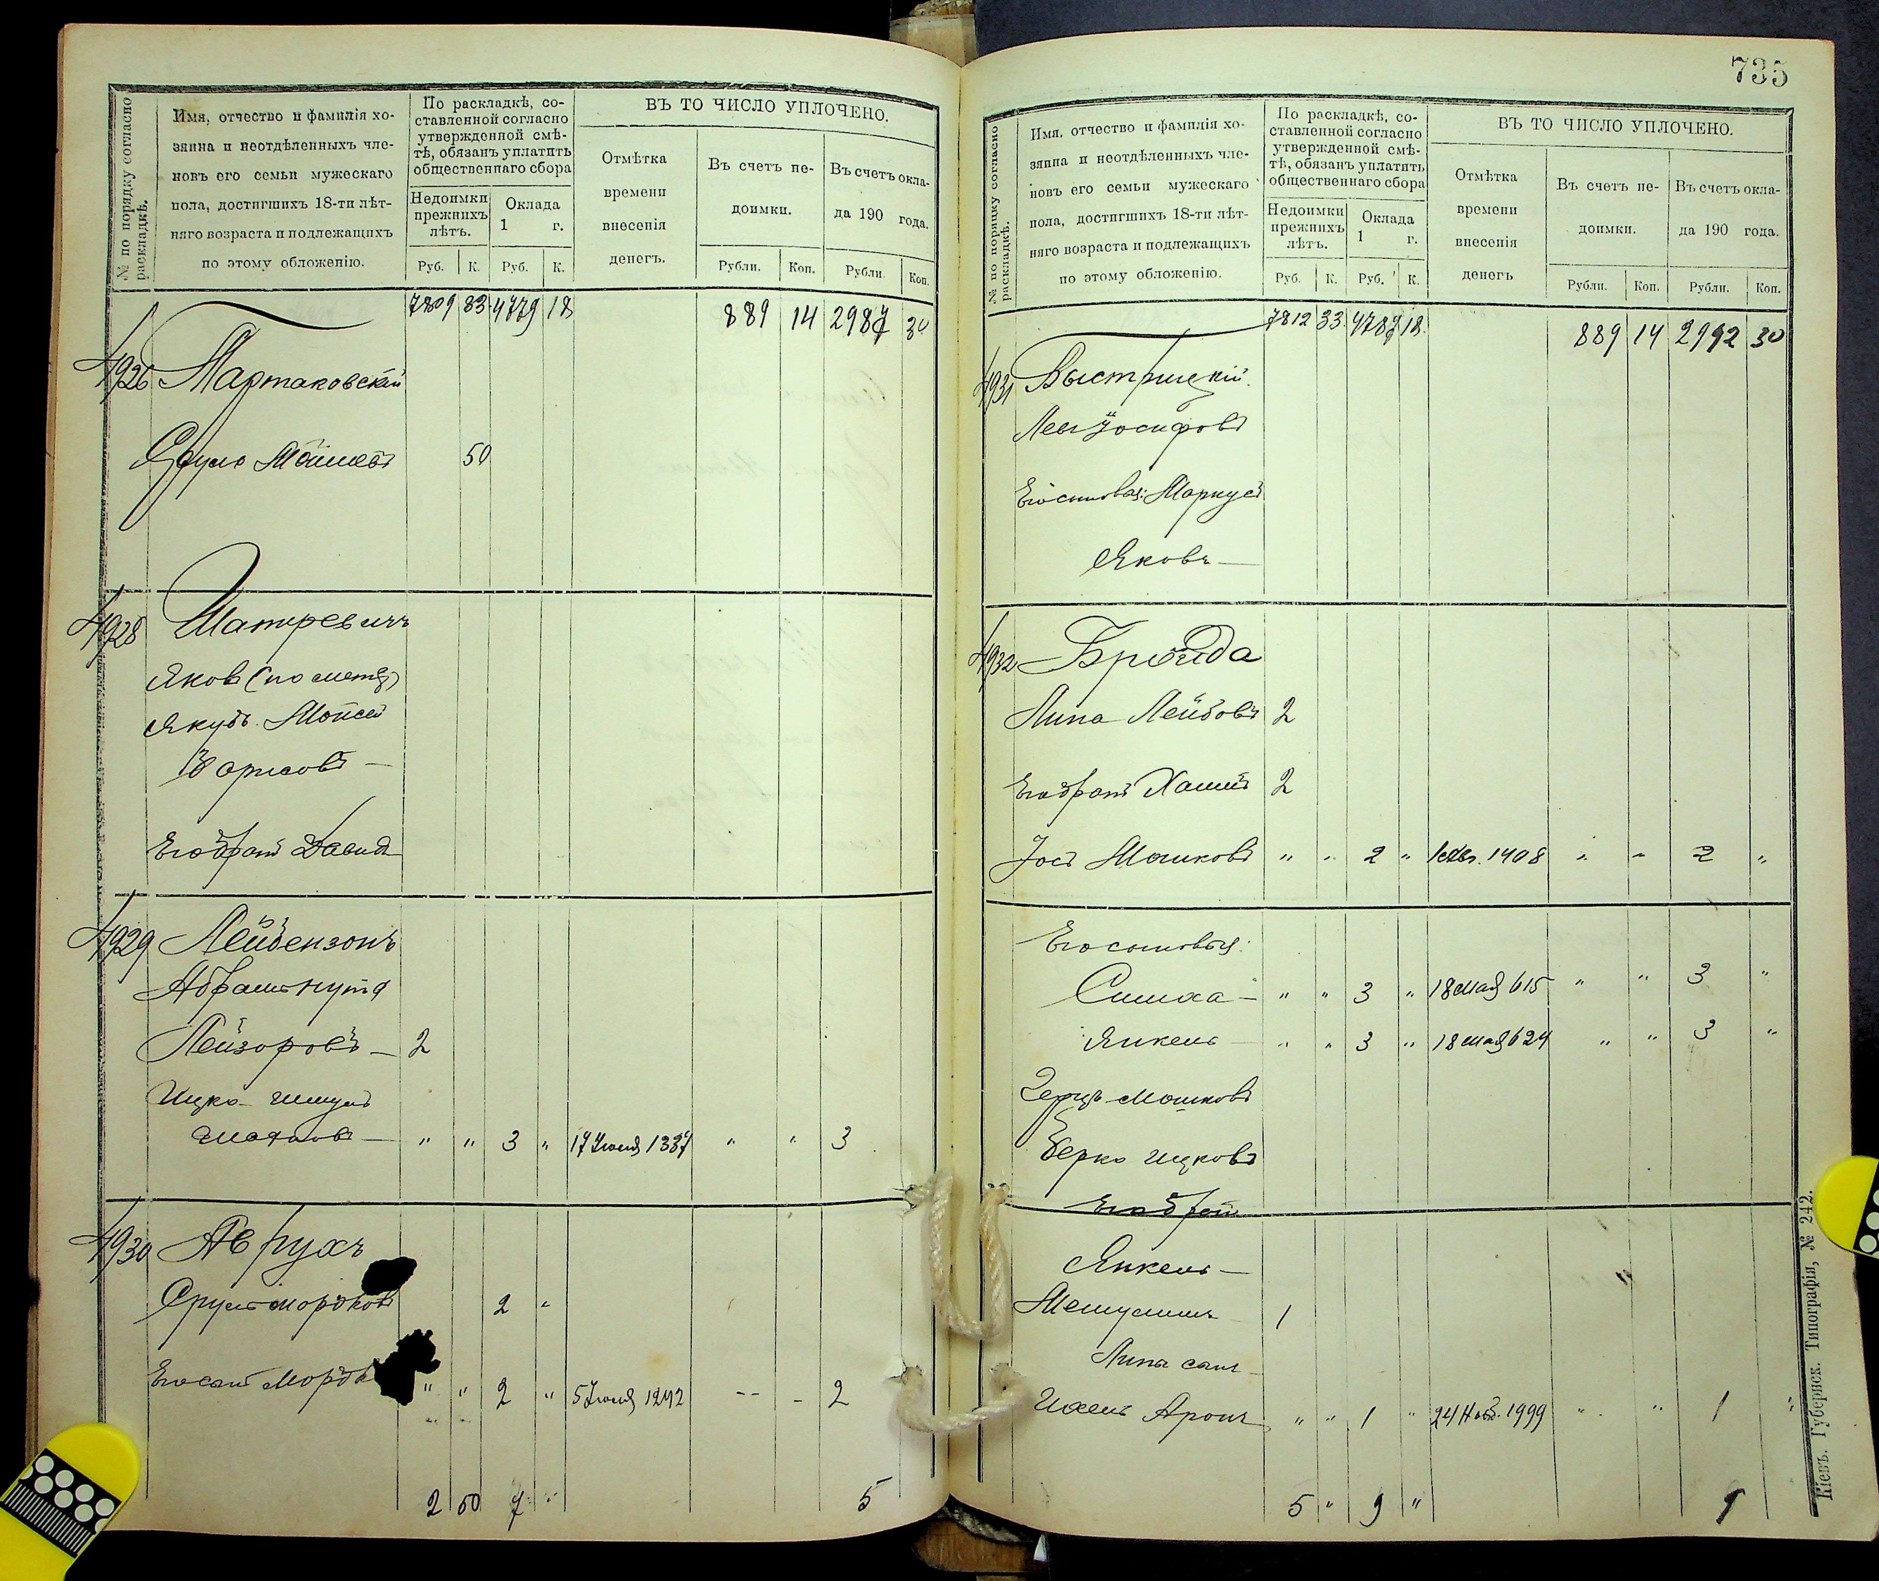 № по порядку согласно раскладкѣ.
Имя, отчество и фамилія хо-
зяина и неотдѣленныхъ чле-
новъ его семьи мужескаго
пола, достигшихъ 18-ти лѣт-
няго возраста и подлежащихъ
по этому обложенію.
По раскладкѣ, со-
ставленной согласно
утвержденной смѣ-
тѣ, обязанъ уплатить
общественнаго сбора
Недоимки
прежнихъ
лѣтъ.
Оклада
1 г.
Руб. К. Руб. К.
ВЪ ТО ЧИСЛО УПЛОЧЕНО.
Отмѣтка
времени
внесенія
денегъ.
Въ счетъ не-
доимки.
Въ счетъ окла-
да 190 года.
Рубли. Коп. Рубли. Коп.
7809 83 4779 18 889 14 2987 30
4926 Мартаковскій
Сруль Мошковъ 50
4928 Шапиревичъ
Яковъ (по метр)
Якубъ Мойсей
Борисовъ —
Его братъ Давидъ
4929 Лейбензонъ
Абрамъ Нута
Лейзоровъ — 2
Ицко Шмуль
— " " 3 " 17 Іюня 1337 " " 3
4930 Аврухъ
Сруль Мордковъ 2 "
Его сынъ Мордк " " 2 " 5 Іюня 1292 -- - 2
2 50 7 " 5
735
№ по порядку согласно раскладкѣ.
Имя, отчество и фамилія хо-
зяина и неотдѣленныхъ чле-
новъ его семьи мужескаго
пола, достигшихъ 18-ти лѣт-
няго возраста и подлежащихъ
по этому обложенію.
По раскладкѣ, со-
ставленной согласно
утвержденной смѣ-
тѣ, обязанъ уплатить
общественнаго сбора
Недоимки
прежнихъ
лѣтъ.
Оклада
1 г.
Руб. К. Руб. К.
ВЪ ТО ЧИСЛО УПЛОЧЕНО.
Отмѣтка
времени
внесенія
денегъ
Въ счетъ не-
доимки.
Въ счетъ окла-
да 190 года.
Рубли. Коп. Рубли. Коп.
7812 33 4787 18 889 14 2992 30
4931 Быстрицкій
Лейб Іосифовъ
Его сыновья: Маркусъ
Яковъ —
4932 Бройда
Липа Лейбовъ 2
Его братъ Хаимъ 2
Іосъ Мошковъ " " 2 " 1408 " " 2 "
Его сыновья:
Симха — " " 3 " 18 мая 615 " " 3 "
Янкель — " " 3 " 18 мая 624 " " 3 "
Герцъ Мошковъ
Берко Ицковъ
Его братъ
Янкель —
Мешулимъ 1
Липа
Ихель Аронъ " " 1 " 24 Нояб. 1999 " " 1 "
5 " 9 " 9
Кіевъ. Губернск. Типографія, № 242.